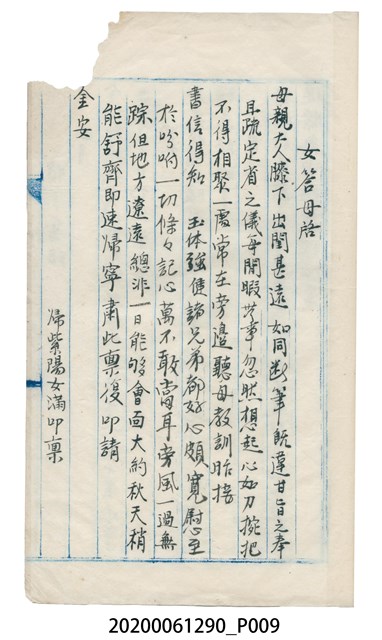 女答母啓
母親大人膝下出閣甚遠如同断筆既違甘旨之奉
且疏定省之儀每閒暇無事忽然想起心如刀挖把
不得相聚一處常在旁邊聽母教訓昨接
書信得知 玉体強健諸兄弟都好心頗寬慰至
於吩咐一切條々記心萬不敢當耳旁風一過無
踪但地方遼遠總非一日能够會面大約秋天稍
能舒齊即速歸寧肅此禀復叩請
金安
歸紫陽女滿叩禀
20200061290_P009